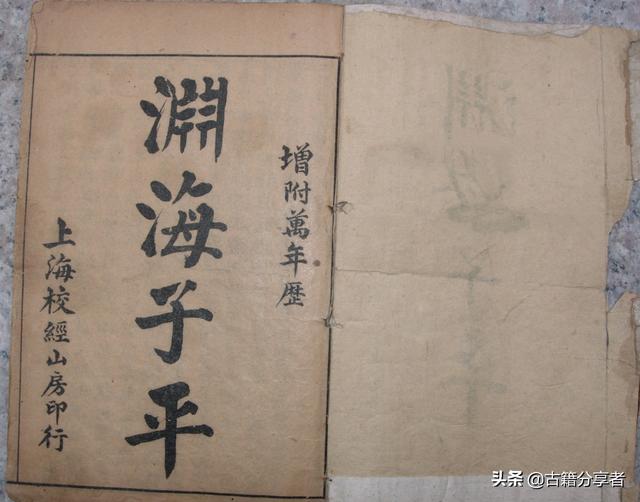 增附萬年歷
淵海子平
上海校經山房印行
头条 @古籍分享者